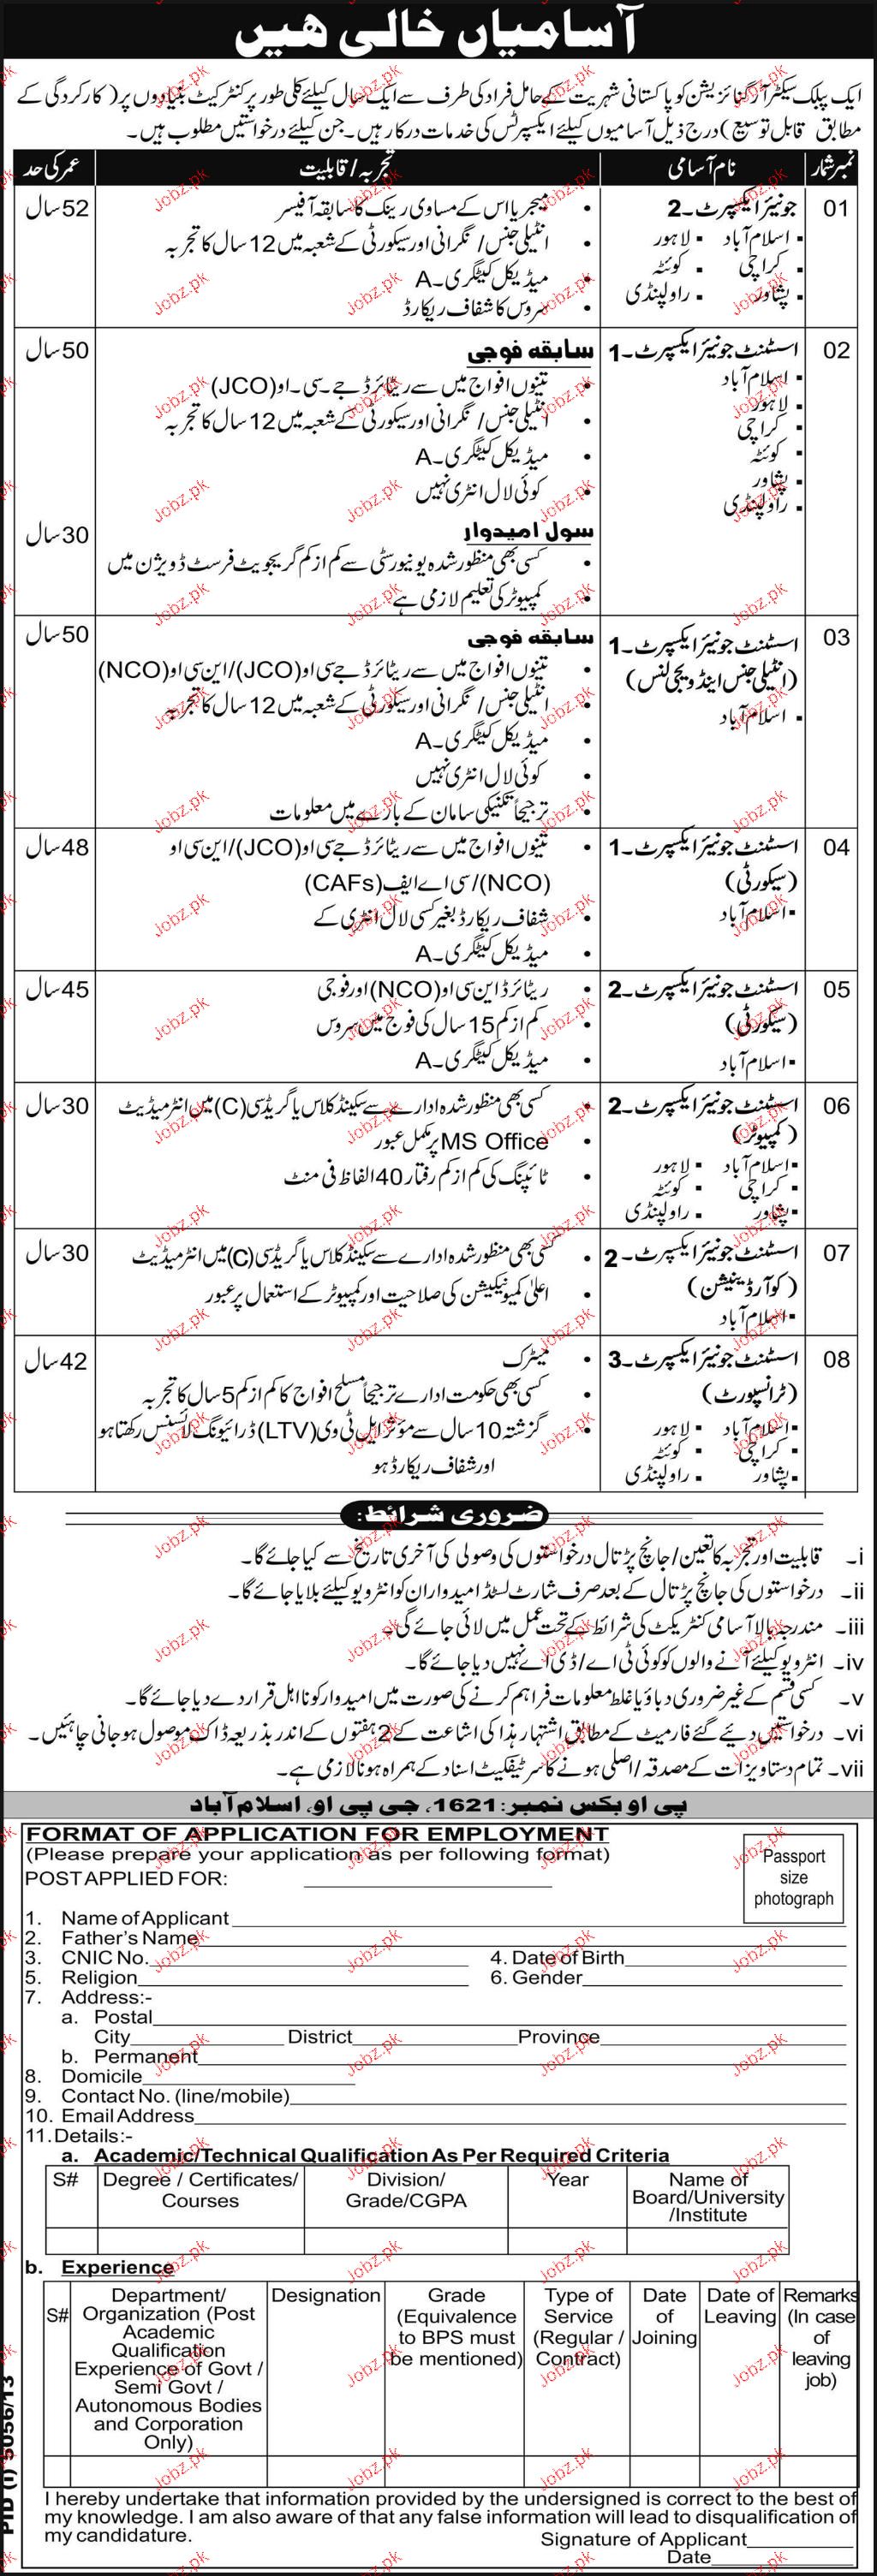 آسامیاں خالی ھیں
ایک پبلک سیکٹر آرگنائزیشن کو پاکستانی شہریت کے حامل افراد کی طرف سے ایک سال کیلئے کلی طور پر کنٹریکٹ بنیادوں پر (کارکردگی کے
مطابق قابل توسیع) درج ذیل آسامیوں کیلئے ایکسپرٹس کی خدمات درکار ہیں۔ جن کیلئے درخواستیں مطلوب ہیں۔
نمبر شمار نام آسامی تجربہ / قابلیت عمر کی حد
01 جونیئر ایکسپرٹ۔2
▪ اسلام آباد ▪ لاہور
▪ کراچی ▪ کوئٹہ
▪ پشاور ▪ راولپنڈی
• میجر یا اس کے مساوی رینک کا سابقہ آفیسر
• انٹیلی جنس / نگرانی اور سیکورٹی کے شعبہ میں 12 سال کا تجربہ
• میڈیکل کیٹگری۔A
• سروس کا شفاف ریکارڈ
52 سال
02 اسسٹنٹ جونیئر ایکسپرٹ۔1
▪ اسلام آباد
▪ لاہور
▪ کراچی
▪ کوئٹہ
▪ پشاور
▪ راولپنڈی
سابقہ فوجی
• تینوں افواج میں سے ریٹائرڈ جے۔سی۔او(JCO)
• انٹیلی جنس / نگرانی اور سیکورٹی کے شعبہ میں 12 سال کا تجربہ
• میڈیکل کیٹگری۔A
• کوئی لال انٹری نہیں
50 سال
سول امیدوار
• کسی بھی منظور شدہ یونیورسٹی سے کم از کم گریجویٹ فرسٹ ڈویژن میں
• کمپیوٹر کی تعلیم لازمی ہے
30 سال
03 اسسٹنٹ جونیئر ایکسپرٹ۔1
(انٹیلی جنس اینڈ ویجی لنس)
▪ اسلام آباد
سابقہ فوجی
• تینوں افواج میں سے ریٹائرڈ جے سی او(JCO)/این سی او(NCO)
• انٹیلی جنس / نگرانی اور سیکورٹی کے شعبہ میں 12 سال کا تجربہ
• میڈیکل کیٹگری۔A
• کوئی لال انٹری نہیں
• ترجیحاً تکنیکی سامان کے بارے میں معلومات
50 سال
04 اسسٹنٹ جونیئر ایکسپرٹ۔1
(سیکورٹی)
▪ اسلام آباد
• تینوں افواج میں سے ریٹائرڈ جے سی او(JCO)/این سی او
(NCO)/سی اے ایف(CAFs)
• شفاف ریکارڈ بغیر کسی لال انٹری کے
• میڈیکل کیٹگری۔A
48 سال
05 اسسٹنٹ جونیئر ایکسپرٹ۔2
(سیکورٹی)
▪ اسلام آباد
• ریٹائرڈ این سی او(NCO) اور فوجی
• کم از کم 15 سال کی فوج میں سروس
• میڈیکل کیٹگری۔A
45 سال
06 اسسٹنٹ جونیئر ایکسپرٹ۔2
(کمپیوٹر)
▪ اسلام آباد ▪ لاہور
▪ کراچی ▪ کوئٹہ
▪ پشاور ▪ راولپنڈی
• کسی بھی منظور شدہ ادارے سے سیکنڈ کلاس یا گریڈ سی (C) میں انٹرمیڈیٹ
• MS Office پر مکمل عبور
• ٹائپنگ کی کم از کم رفتار 40 الفاظ فی منٹ
30 سال
07 اسسٹنٹ جونیئر ایکسپرٹ۔2
(کوآرڈینیشن)
▪ اسلام آباد
• کسی بھی منظور شدہ ادارے سے سیکنڈ کلاس یا گریڈ سی (C) میں انٹرمیڈیٹ
• اعلیٰ کمیونیکیشن کی صلاحیت اور کمپیوٹر کے استعمال پر عبور
30 سال
08 اسسٹنٹ جونیئر ایکسپرٹ۔3
(ٹرانسپورٹ)
▪ اسلام آباد ▪ لاہور
▪ کراچی ▪ کوئٹہ
▪ پشاور ▪ راولپنڈی
• میٹرک
• کسی بھی حکومت ادارے ترجیحاً مسلح افواج کا کم از کم 5 سال کا تجربہ
• گزشتہ 10 سال سے مؤثر ایل ٹی وی (LTV) ڈرائیونگ لائسنس رکھتا ہو
اور شفاف ریکارڈ ہو
42 سال
ضروری شرائط:
i۔ قابلیت اور تجربہ کا تعین / جانچ پڑتال درخواستوں کی وصولی کی آخری تاریخ سے کیا جائے گا۔
ii۔ درخواستوں کی جانچ پڑتال کے بعد صرف شارٹ لسٹڈ امیدواران کو انٹرویو کیلئے بلایا جائے گا۔
iii۔ مندرجہ بالا آسامی کنٹریکٹ کی شرائط کے تحت عمل میں لائی جائے گی۔
iv۔ انٹرویو کیلئے آنے والوں کو کوئی ٹی اے / ڈی اے نہیں دیا جائے گا۔
v۔ کسی قسم کے غیر ضروری دباؤ یا غلط معلومات فراہم کرنے کی صورت میں امیدوار کو نا اہل قرار دے دیا جائے گا۔
vi۔ درخواستیں دیئے گئے فارمیٹ کے مطابق اشتہار ہذا کی اشاعت کے 2 ہفتوں کے اندر بذریعہ ڈاک موصول ہو جانی چاہئیں۔
vii۔ تمام دستاویزات کے مصدقہ / اصلی ہونے کا سرٹیفکیٹ اسناد کے ہمراہ ہونا لازمی ہے۔
پی او بکس نمبر: 1621، جی پی او، اسلام آباد
FORMAT OF APPLICATION FOR EMPLOYMENT
(Please prepare your application as per following format)
POST APPLIED FOR:
Passport
size
photograph
1. Name of Applicant
2. Father's Name
3. CNIC No. 4. Date of Birth
5. Religion 6. Gender
7. Address:-
a. Postal
City District Province
b. Permanent
8. Domicile
9. Contact No. (line/mobile)
10. Email Address
11. Details:-
a. Academic/Technical Qualification As Per Required Criteria
S# Degree / Certificates/ Courses Division/ Grade/CGPA Year Name of Board/University /Institute
b. Experience
S# Department/ Organization (Post Academic Qualification Experience of Govt / Semi Govt / Autonomous Bodies and Corporation Only) Designation Grade (Equivalence to BPS must be mentioned) Type of Service (Regular / Contract) Date of Joining Date of Leaving Remarks (In case of leaving job)
I hereby undertake that information provided by the undersigned is correct to the best of
my knowledge. I am also aware of that any false information will lead to disqualification of
my candidature.
Signature of Applicant
Date
PID (I) 5056/13
Jobz.pk